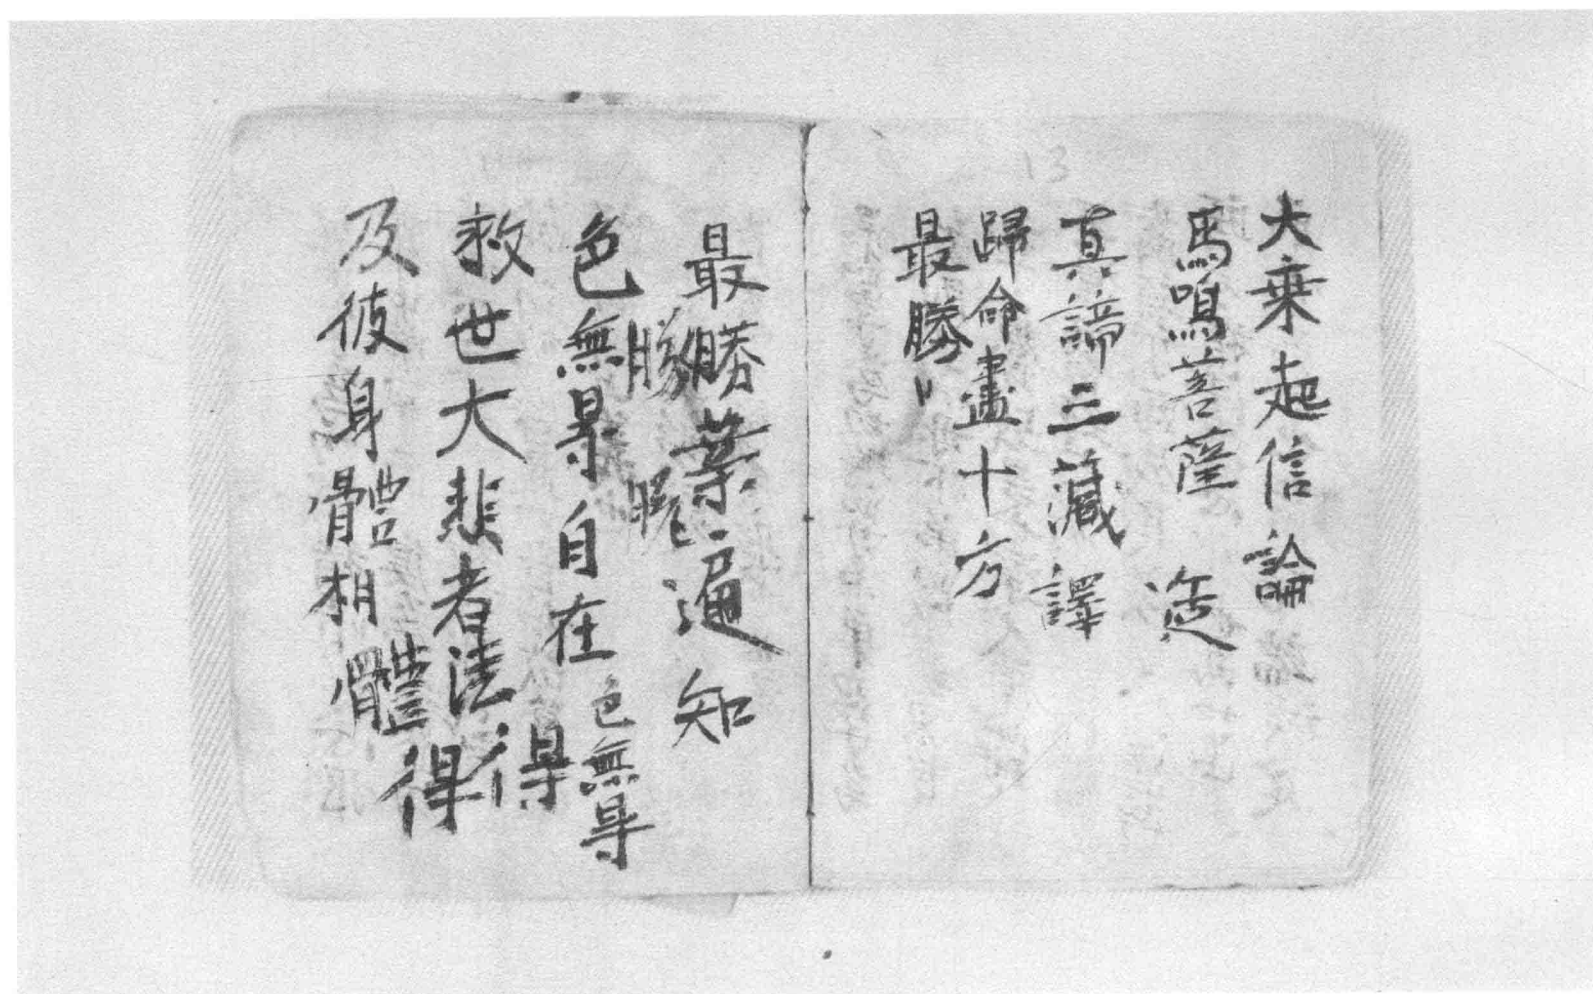 13
大乗起信論
馬鳴菩薩 造
真諦三藏譯
歸命盡十方
最勝〃
最勝業遍知
勝
色無㝵自在
色無㝵
救世大悲者法
得
得
及彼身體相
體